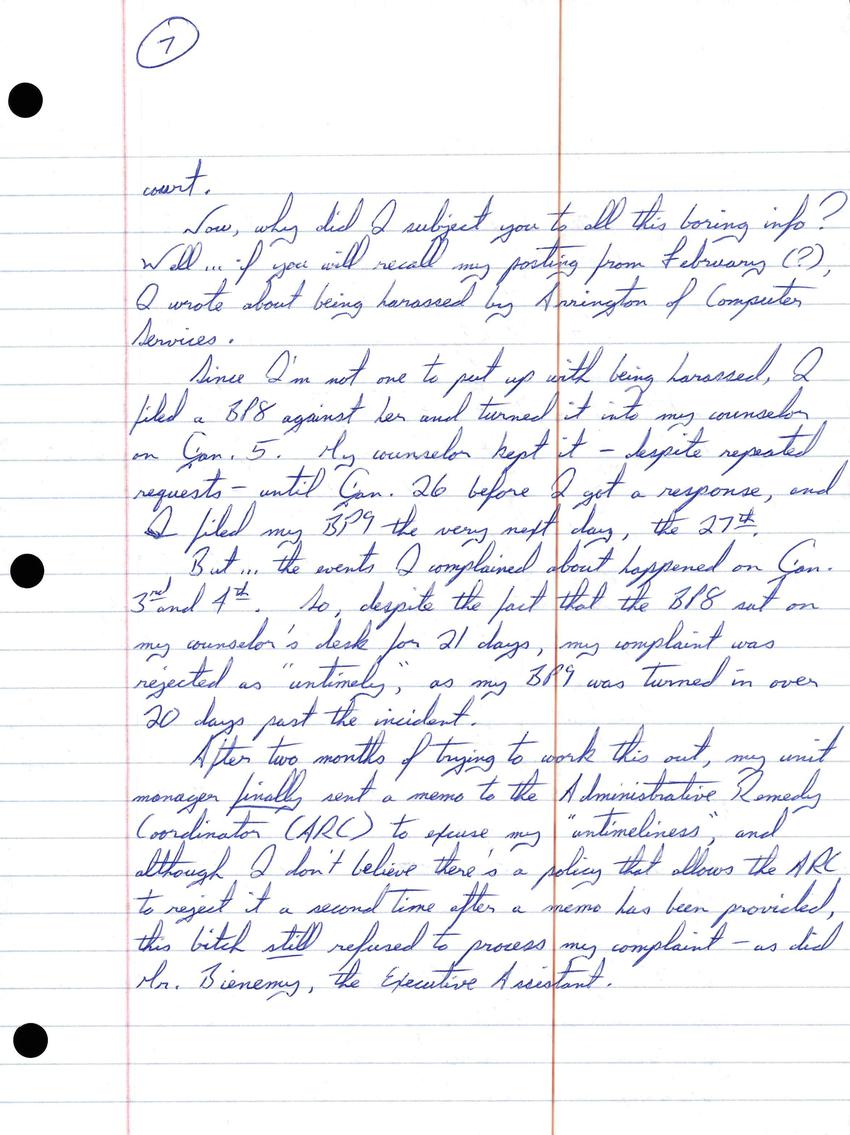 7
court.
Now, why did I subject you to all this boring info?
Well... if you will recall my posting from February (?),
I wrote about being harassed by Arrington of Computer
Services.
Since I'm not one to put up with being harassed, I
filed a BP8 against her and turned it into my counselor
on Jan. 5. My counselor kept it – despite repeated
requests – until Jan. 26 before I got a response, and
I filed my BP9 the very next day, the 27th.
But... the events I complained about happened on Jan.
3rd and 4th. So, despite the fact that the BP8 sat on
my counselor's desk for 21 days, my complaint was
rejected as "untimely," as my BP9 was turned in over
20 days past the incident.
After two months of trying to work this out, my unit
manager finally sent a memo to the Administrative Remedy
Coordinator (ARC) to excuse my "untimeliness," and
although I don't believe there's a policy that allows the ARC
to reject it a second time after a memo has been provided,
this bitch still refused to process my complaint – as did
Mr. Bienemy, the Executive Assistant.